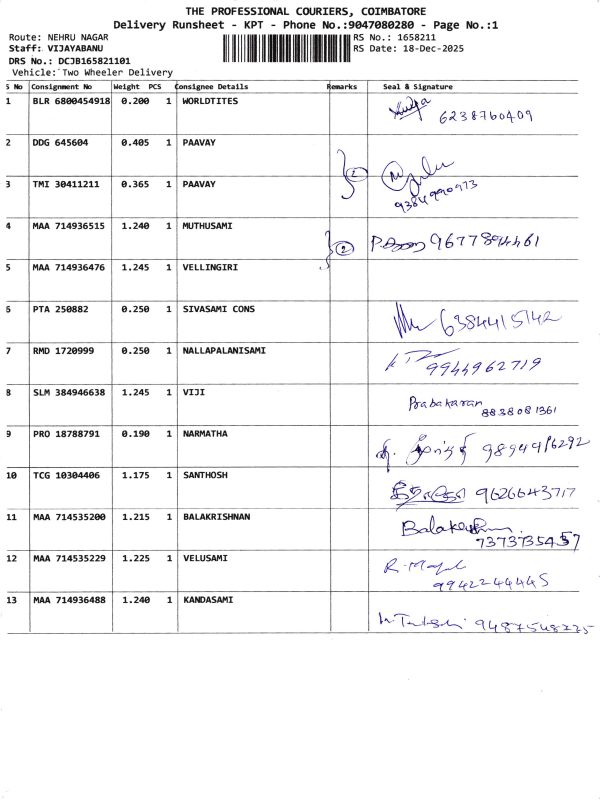 THE PROFESSIONAL COURIERS, COIMBATORE
Delivery Runsheet - KPT - Phone No.:9047080280 - Page No.:1
Route: NEHRU NAGAR RS No.: 1658211
Staff: VIJAYABANU RS Date: 18-Dec-2025
DRS No.: DCJB165821101
Vehicle: Two Wheeler Delivery
S No Consignment No Weight PCS Consignee Details Remarks Seal & Signature
1 BLR 6800454918 0.200 1 WORLDTITES 6238760409
2 DDG 645604 0.405 1 PAAVAY
3 TMI 30411211 0.365 1 PAAVAY 9384990973
4 MAA 714936515 1.240 1 MUTHUSAMI 2 9677894461
5 MAA 714936476 1.245 1 VELLINGIRI
6 PTA 250882 0.250 1 SIVASAMI CONS 6384415142
7 RMD 1720999 0.250 1 NALLAPALANISAMI 9944962719
8 SLM 384946638 1.245 1 VIJI Prabakaran 8838081361
9 PRO 18788791 0.190 1 NARMATHA 9894916292
10 TCG 10304406 1.175 1 SANTHOSH 9626643717
11 MAA 714535200 1.215 1 BALAKRISHNAN
12 MAA 714535229 1.225 1 VELUSAMI 9942244445
13 MAA 714936488 1.240 1 KANDASAMI 9487548225